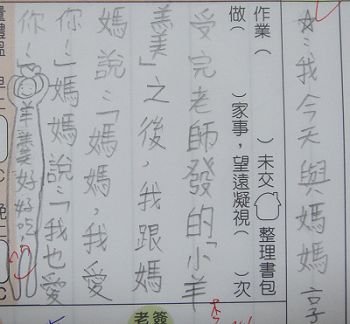 ☆:我今天與媽媽享
作業( )未交 整理書包
做( )家事,望遠凝視( )次
受完老師發的「小羊
羹」之後,我跟媽
媽說:「媽媽,我愛
你!」媽媽說:「我也愛
你!」羊羹好好吃
量體溫 早 °C 晚 °C